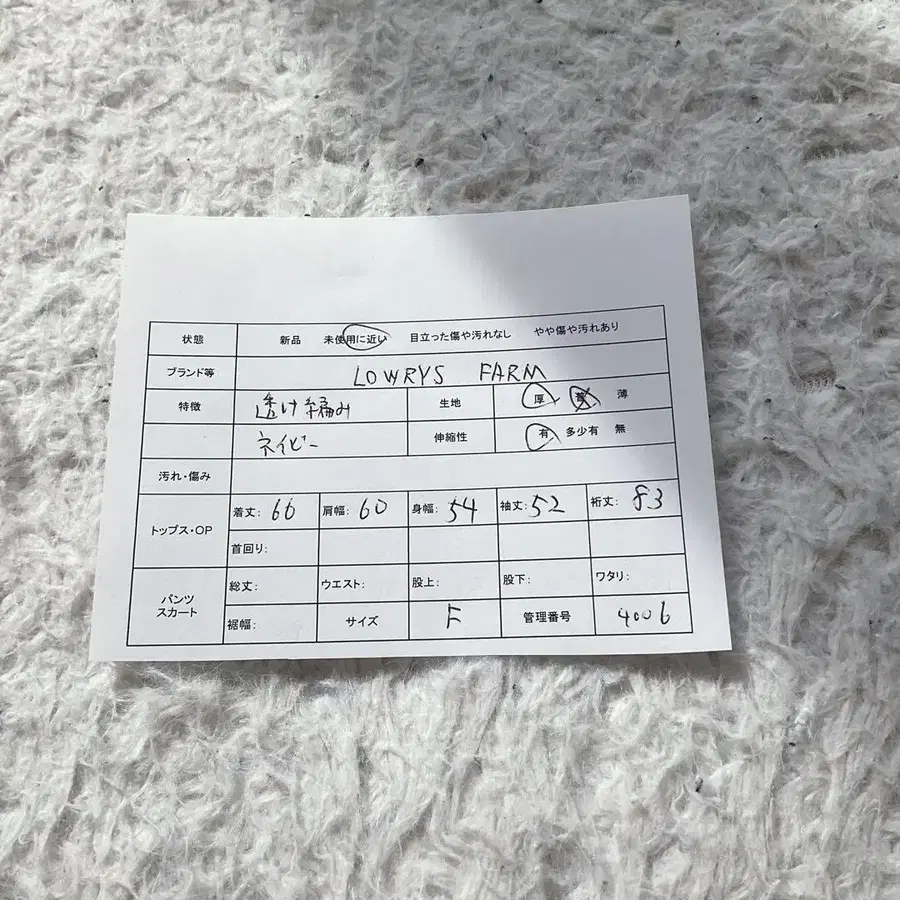 状態 新品 未使用に近い 目立った傷や汚れなし やや傷や汚れあり
ブランド等 LOWRYS FARM
特徴 透け編み 生地 厚 普 薄
ネイビー 伸縮性 有 多少有 無
汚れ・傷み
トップス・OP 着丈: 66 肩幅: 60 身幅: 54 袖丈: 52 裄丈: 83
首回り:
パンツ スカート 総丈: ウエスト: 股上: 股下: ワタリ:
裾幅: サイズ F 管理番号 4006